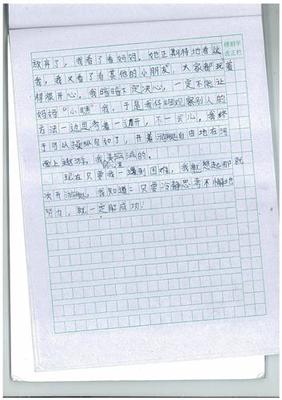 放弃了，我看了看妈妈，她正期待地看这
我，我又看了看其他的小朋友，大家都玩着
得很开心，我暗暗下定决心，一定不能让
妈妈"小瞧"我，于是我仔细观察别人的
方法一边思考着一 不一会儿，我终
于可以操纵自如了，开着 自由地在河
面上
现在只要我一遇到困难，我就想起那
次开 我知道：只要冷静思考不懈地
努力，就一定能成功！